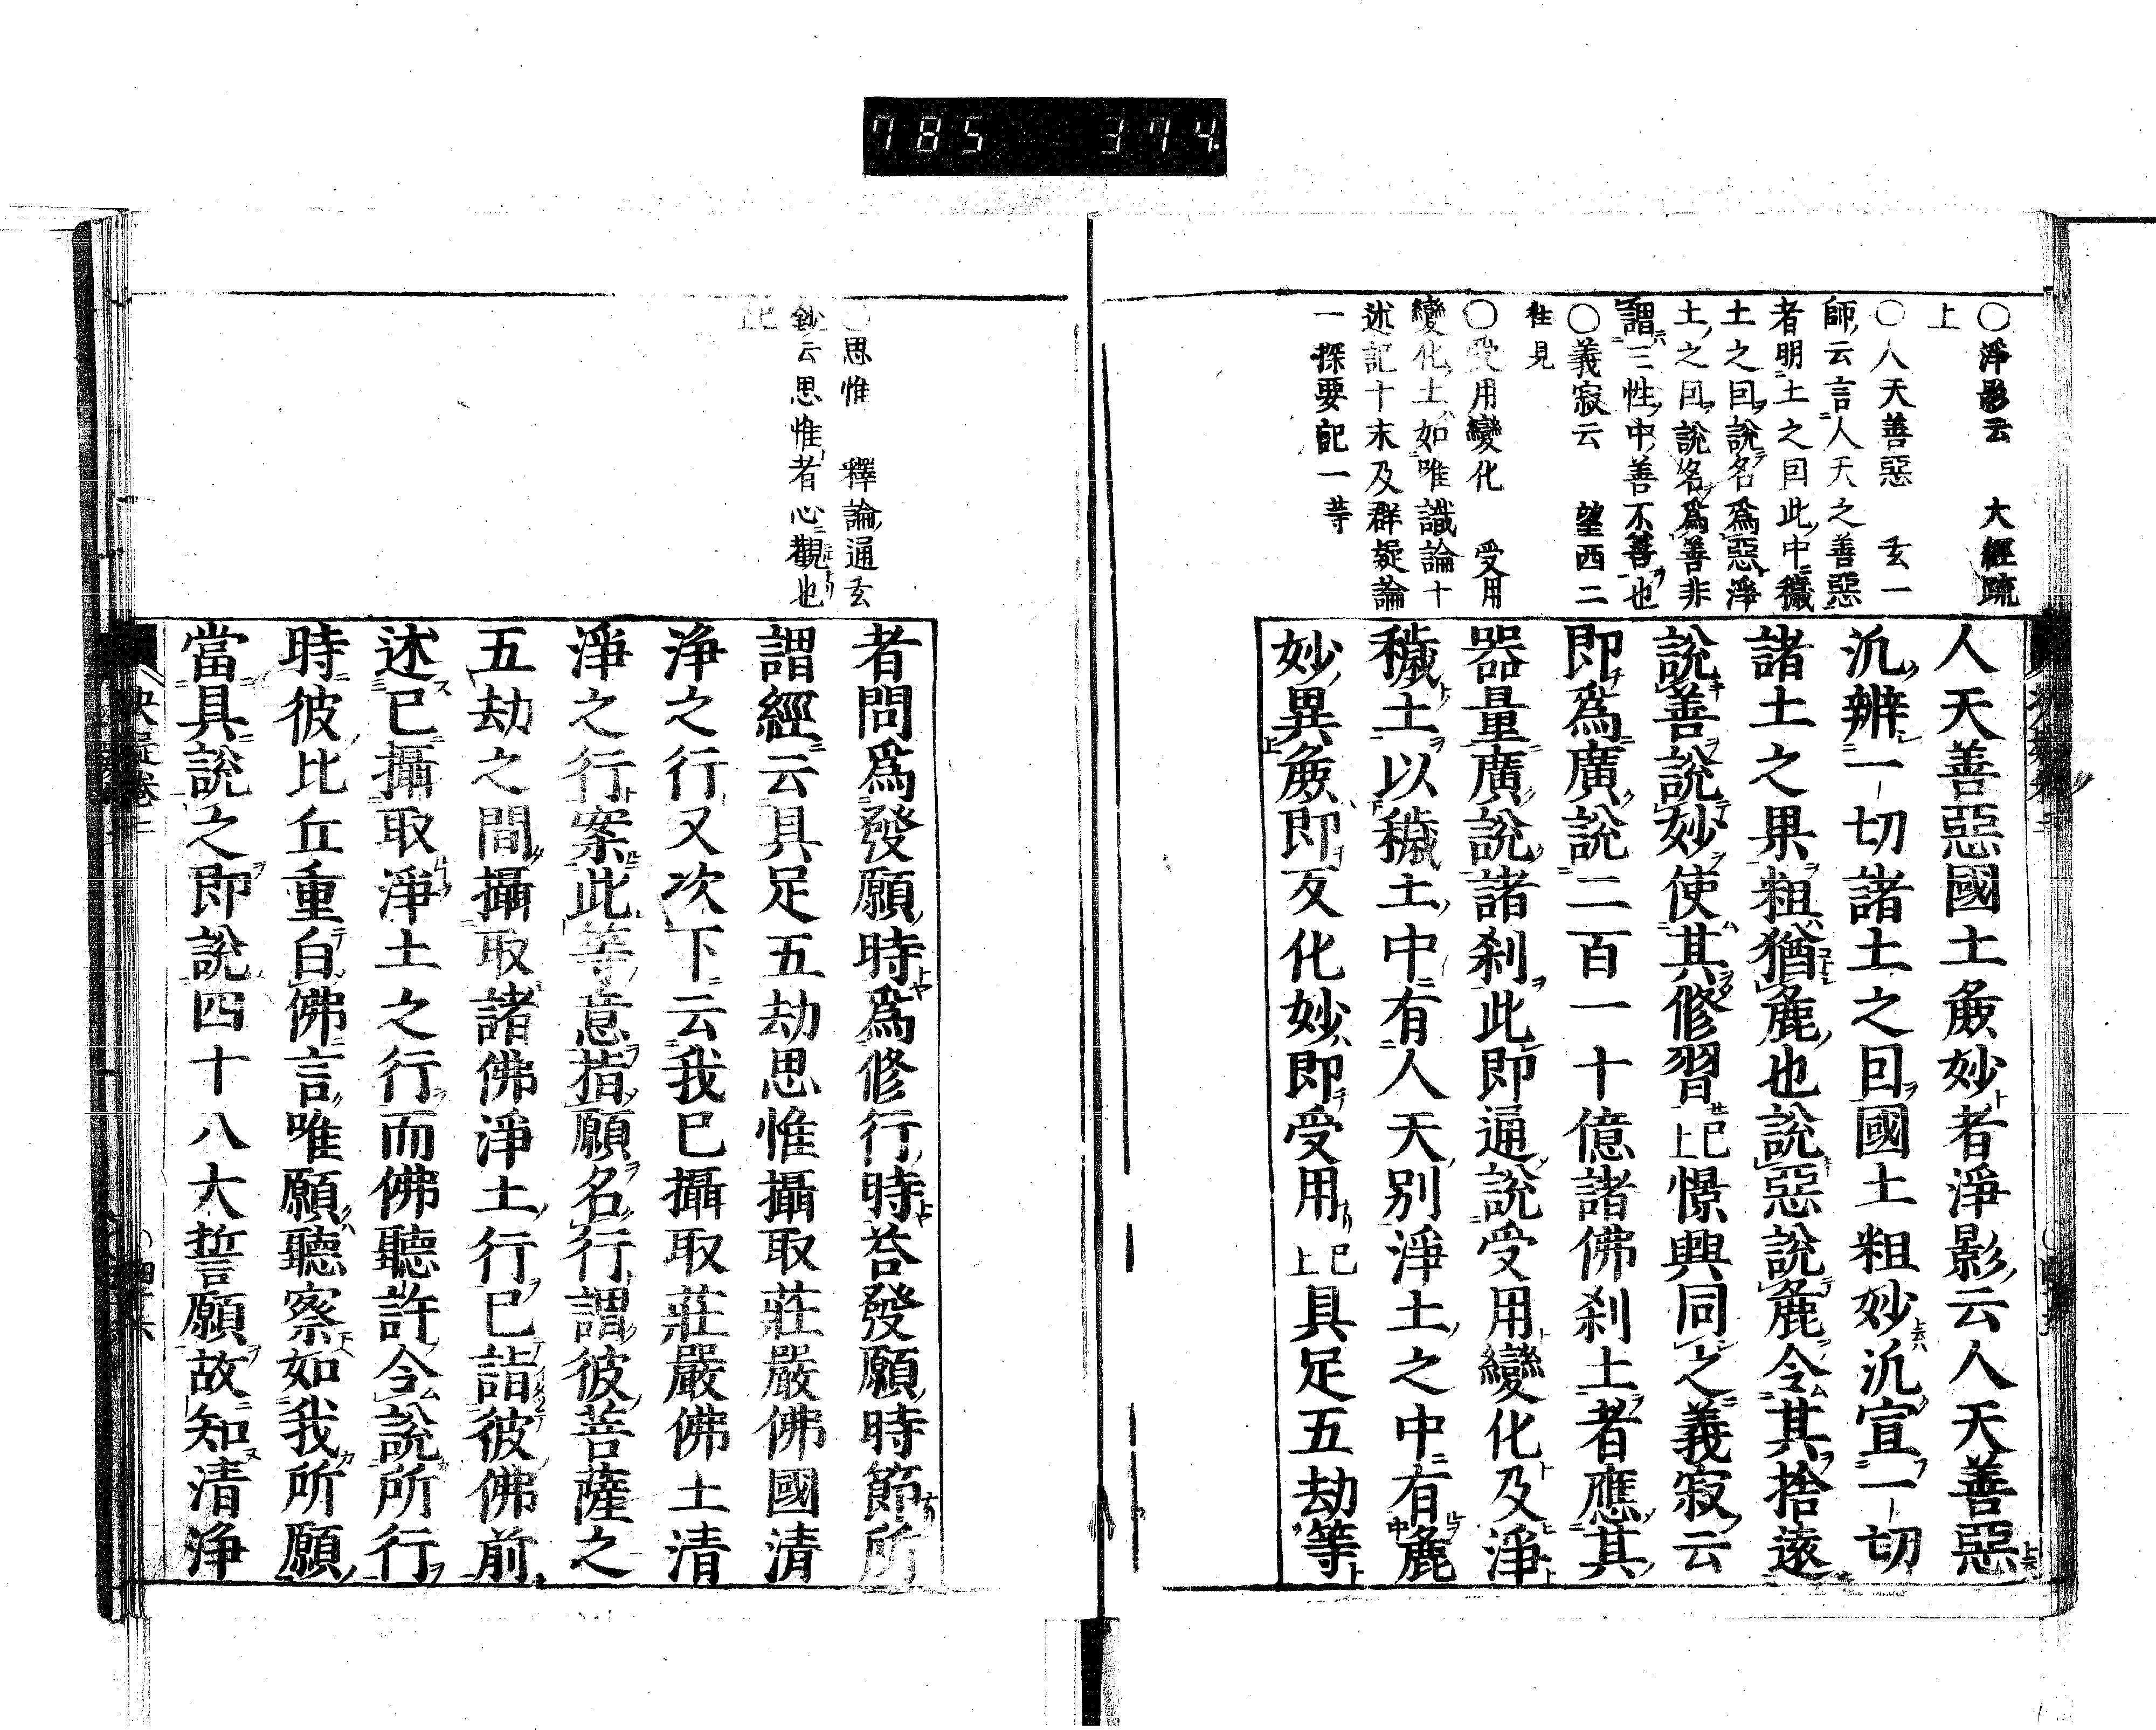 785 374
〇淨影云 大經疏
上
〇人天善惡 玄一
師云言人天之善惡
者明土之因此中穢
土之因說名爲惡淨
土之因說名爲善非
謂三性中善不善也
〇義寂云 望西二
往見
〇受用變化 受用
變化土如唯識論十
述記十末及群疑論
一探要記一等
人天善惡國土麁妙者淨影云人天善惡
汎辨一切諸土之因國土粗妙汎宣一切
諸土之果粗猶麁也說惡說麁令其捨遠
說善說妙使其修習已上憬興同之義寂云
即爲廣說二百一十億諸佛刹土者應其
器量廣說諸刹此即通說受用變化及淨
穢土以穢土中有人天別淨土之中有麁
妙異麁即變化妙即受用已上具足五劫等
〇思惟 釋論通玄
鈔云思惟者心觀也
已上
者問爲發願時爲修行時答發願時節所
謂經云具足五劫思惟攝取莊嚴佛國清
淨之行又次下云我已攝取莊嚴佛土清
淨之行案此等意指願名行謂彼菩薩之
五劫之間攝取諸佛淨土行已詣彼佛前
述已攝取淨土之行而佛聽許令說所行
時彼比丘重白佛言唯願聽察如我所願
當具說之即說四十八大誓願故知清淨